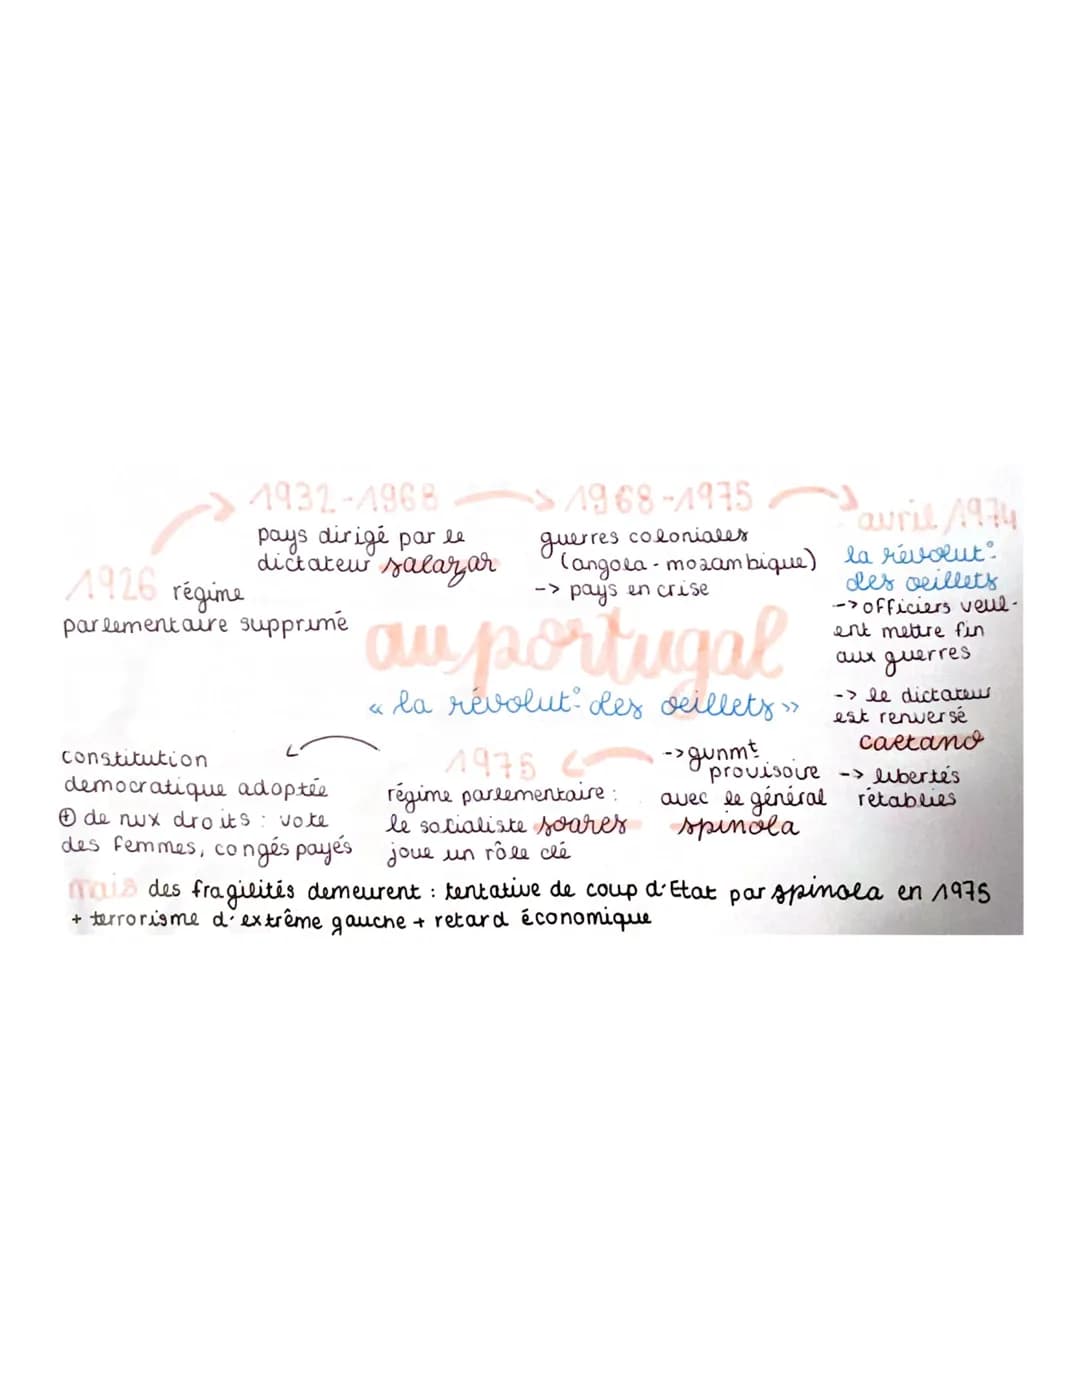 1926 régime
parlementaire supprimé
1932-1968
pays dirigé par le
dictateur salazar
1968-1975
guerres coloniales
(angola - mozambique)
-> pays en crise
avril 1974
la révolut°
des oeillets
-> officiers veul-
ent mettre fin
aux guerres
-> le dictateur
est renversé
caetano
-> libertés
rétablies
au portugal
« la révolut° des oeillets »
-> gvnmt
provisoire
avec le général
spinola
1976
régime parlementaire :
le socialiste soares
joue un rôle clé
constitution
democratique adoptée
⊕ de nvx droits : vote
des femmes, congés payés
mais des fragilités demeurent : tentative de coup d'Etat par spinola en 1975
+ terrorisme d'extrême gauche + retard économique